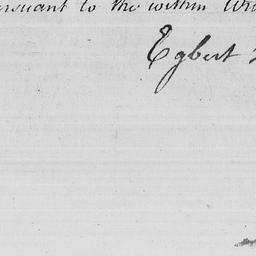 pursuant to the within Writ
Egbert